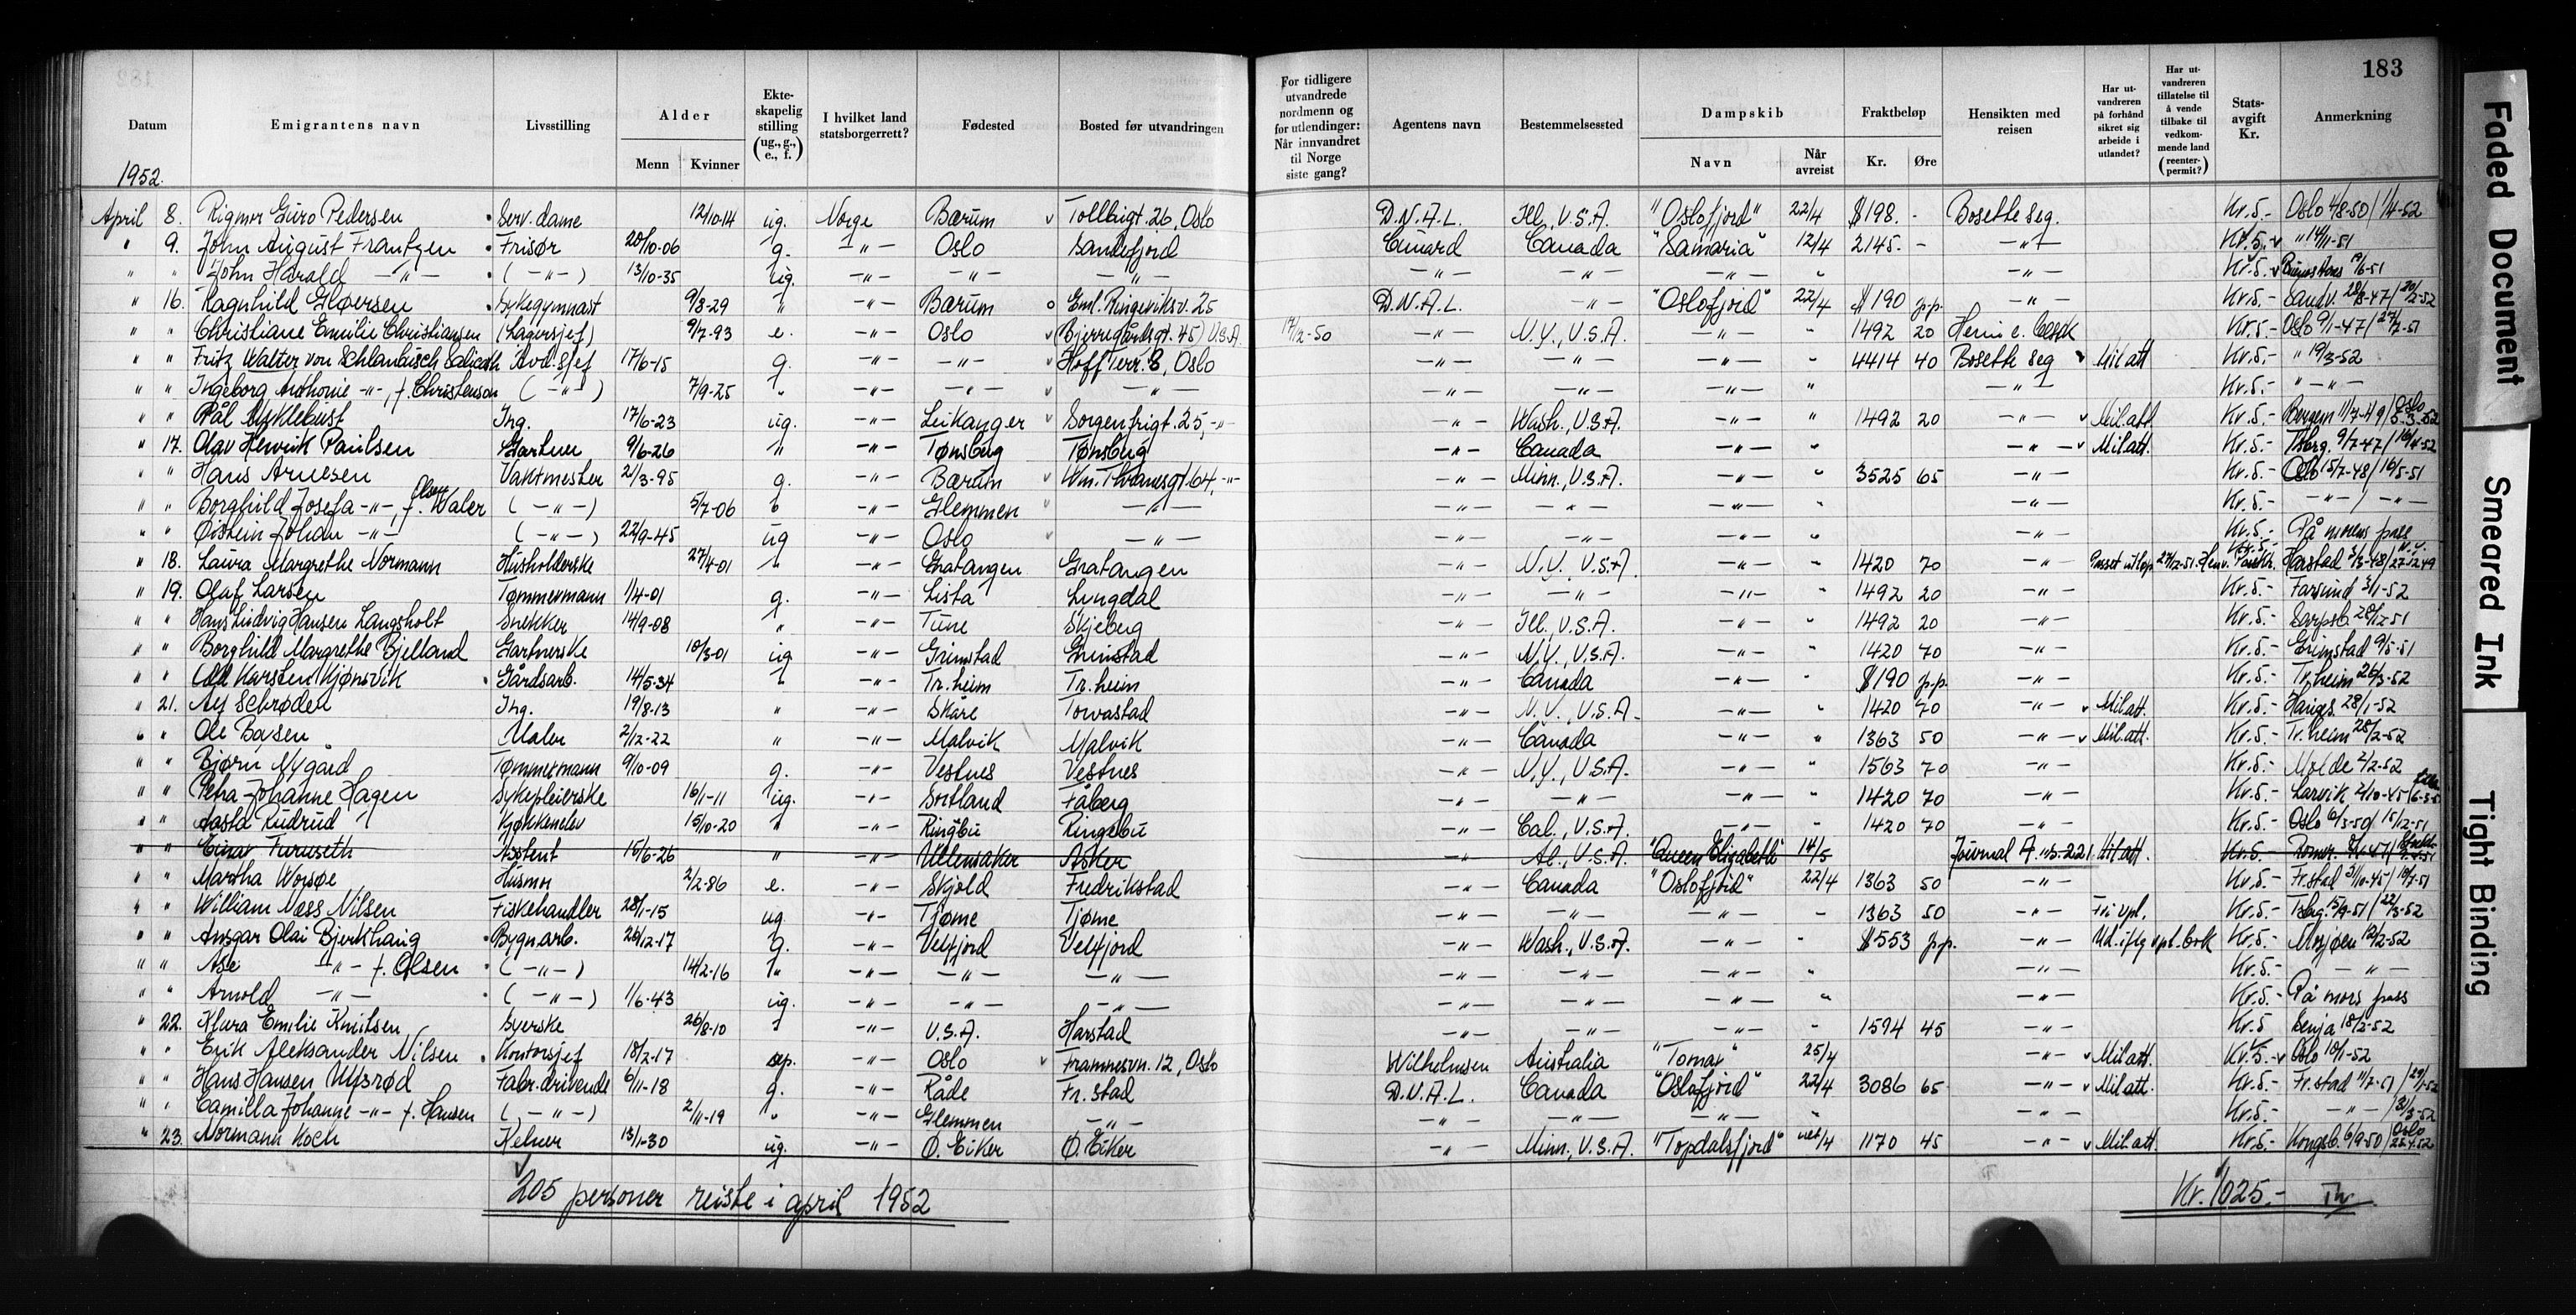 183
Datum | Emigrantens navn | Livsstilling | Alder Menn Kvinner | Ekteskapelig stilling (ug., g., e., f.) | I hvilket land statsborgerrett? | Fødested | Bosted før utvandringen | For tidligere utvandrede nordmenn og for utlendinger: Når innvandret til Norge siste gang? | Agentens navn | Bestemmelsessted | Dampskib Navn Når avreist | Fraktbeløp Kr. Øre | Hensikten med reisen | Har utvandreren på forhånd sikret sig arbeide i utlandet? | Har utvandreren tillatelse til å vende tilbake til vedkommende land (reenter-permit?) | Statsavgift Kr. | Anmerkning
1952.
April 8. Rigmor Guro Pedersen Serv.dame 12/10-14 ug. Norge Bærum Tollbugt. 26, Oslo D.N.A.L. Ill., U.S.A. "Oslofjord" 22/4 $198. - Bosette seg. Kr. 5.- Oslo 4/8-50 / 1/4-52
" 9. John August Frantzen Frisør 20/10-06 g. -"- Oslo Sandefjord Cunard Canada "Samaria" 12/4 2145. - -"- Kr. 5.- " 14/11-51
" " John Harald -"- (-"-) 13/10-35 ug. -"- -"- -"- -"- -"- -"- " -"- Kr. 5.- Buenos Aires 19/6-51
" 16. Ragnhild Gløersen Sykegymnast 9/8-29 " -"- Bærum Eml. Ringeviksv. 25 D.N.A.L. -"- "Oslofjord" 22/4 $190 p.p. -"- Kr. 5.- Sandv. 28/8-47 / 20/2-52
" " Christiane Emilie Christiansen (Lagersjef) 9/7-93 e. -"- Oslo (Bjerregårdsgt. 45) U.S.A. 17/12-50 -"- N.Y., U.S.A. -"- " 1492 20 Kr. 5.- Oslo 9/1-47 / 27/7-51
" " Fritz Walter von Schlanbusch Avd.sjef 17/6-15 g. -"- -"- Hoff Terr. 8, Oslo -"- -"- -"- " 4414 40 Bosette seg Mil att Kr. 5.- " 19/3-52
" " Ingeborg Anthonie -"-, f. Christenson (-"-) 7/9-25 " -"- -"- -"- -"- -"- -"- " -"- Kr. 5.- " -"-
" " Pål Myklebust Ing. 17/6-23 ug. -"- Leikanger Sorgenfrigt. 25, -"- -"- Wash., U.S.A. -"- " 1492 20 -"- Mil.att Kr. 5.- Bergen 11/7-49 / Oslo 5-3-52
" 17. Olav Henrik Paulsen Gartner 9/6-26 " -"- Tønsberg Tønsberg -"- Canada -"- " -"- Mil.att. Kr. 5.- Tbrg. 9/7-47 / 16/4-52
" " Hans Arnesen Vaktmester 21/3-95 g. -"- Bærum Wm. Thranesgt. 64, -"- -"- Minn., U.S.A. -"- " 3525 65 -"- Kr. 5.- Oslo 15/7-48 / 16/5-51
" " Borghild Josefa -"-, f. Olsen Waler (-"-) 5/7-06 " -"- Glemmen -"- -"- -"- -"- " -"- Kr. 5.- -"- / -"-
" " Øistein Johan -"- (-"-) 22/9-45 ug -"- Oslo -"- -"- -"- -"- " -"- Kr. 5.- På morens pass
" 18. Laura Margrethe Normann Husholderske 27/4-01 " -"- Gratangen Gratangen -"- N.Y. U.S.A. -"- " 1420 70 -"- Passet utløp 27/12-51. Kr. 5.- Harstad 3/3-48 / N.Y. 27-12-49
" 19. Olaf Larsen Tømmermann 1/4-01 g. -"- Lista Lyngdal -"- -"- -"- " 1492 20 -"- Kr. 5.- Farsund 3/1-52
" " Hans Ludvig Hansen Langsholt Snekker 14/9-08 " -"- Tune Skjeberg -"- Ill., U.S.A. -"- " 1492 20 -"- Kr. 5.- Sarpsb. 28/12-51
" " Borghild Margrethe Bjelland Gartnerske 10/3-01 ug -"- Grimstad Grimstad -"- N.Y., U.S.A. -"- " 1420 70 -"- Kr. 5.- Grimstad 9/5-51
" " Odd Karsten Kjønsvik Gårdsarb. 14/5-34 " -"- Tr.heim Tr.heim -"- Canada -"- " $190 p.p. -"- Kr. 5.- Tr.heim 26/3-52
" 21. Alf Schrøder Ing. 19/8-13 " -"- Skåre Torvastad -"- N.Y., U.S.A. -"- " 1420 70 -"- Mil.att. Kr. 5.- Hauges. 28/1-52
" " Ole Boysen Maler 2/12-22 " -"- Malvik Malvik -"- Canada -"- " 1363 50 -"- Mil.att. Kr. 5.- Tr.heim 28/2-52
" " Bjørn Nygård Tømmermann 9/10-09 g. -"- Vestnes Vestnes -"- N.Y., U.S.A. -"- " 1563 70 -"- Kr. 5.- Molde 2/2-52
" " Petra Johanne Hagen Sykepleierske 16/1-11 ug. -"- Sortland Fåberg -"- -"- -"- " 1420 70 -"- Kr. 5.- Larvik 2/10-45
" " Aasta Rudrud Kjøkkenelev 15/10-20 " -"- Ringebu Ringebu -"- Cal., U.S.A. -"- " 1420 70 -"- Kr. 5.- Oslo 6/3-50 / 15/12-51
" " Einar Furuseth Assistent 15/6-26 " -"- Ullensaker Asker -"- Al., U.S.A. "Queen Elizabeth" 14/5 Journal A. 113-221 Mil att. Kr. 5.- Romer. 8/1-47
" " Martha Worsøe Husmor 2/2-86 e. -"- Skjold Fredrikstad -"- Canada "Oslofjord" 22/4 1363 50 -"- Kr. 5.- Fr.stad 3/10-45 / 10/7-51
" " William Næss Nilsen Fiskehandler 28/1-15 ug -"- Tjøme Tjøme -"- -"- -"- " 1363 50 -"- Fri vpl. Kr. 5.- Tbrg. 15/9-51 / 22/3-52
" " Ansgar Olai Bjerkhaug Bygn.arb. 26/12-17 g. -"- Velfjord Velfjord -"- Wash., U.S.A. -"- " $553 p.p. -"- Ud. iflg vpl. bok Kr. 5.- Mosjøen 12/2-52
" " Åse -"- f. Olsen (-"-) 14/2-16 " -"- -"- -"- -"- -"- -"- " -"- Kr. 5.- -"-
" " Arnold -"- (-"-) 1/6-43 ug. -"- -"- -"- -"- -"- -"- " -"- Kr. 5.- På mors pass
" 22. Klara Emilie Knutsen Syerske 26/8-10 " -"- U.S.A. Harstad -"- -"- -"- " 1594 45 -"- Kr. 5 Senja 18/2-52
" " Erik Aleksander Nilsen Kontorsjef 18/2-17 sep. -"- Oslo Framnesvn. 12, Oslo Wilhelmsen Australia "Tomar" 25/4 -"- Mil att. Kr. 5.- Oslo 10/1-52
" " Hans Hansen Ulfsrød Fabr.drivende 6/11-18 g. -"- Råde Fr.stad D.N.A.L. Canada "Oslofjord" 22/4 3086 65 -"- Mil att. Kr. 5.- Fr.stad 11/7-51 / 29/1-52
" " Camilla Johanne -"- f. Hansen (-"-) 2/11-19 " -"- Glemmen -"- -"- -"- -"- " -"- Kr. 5.- -"- / 31/3-52
" 23. Normann Koch Kelner 13/1-30 ug. -"- Ø. Eiker Ø. Eiker -"- Minn., U.S.A. "Topdalsfjord" ult/4 1170 45 -"- Mil att. Kr. 5.- Kongsb. 6/9-50 / Oslo 22.4.52
205 personer reiste i april 1952 Kr. 1025.-
Faded Document
Smeared Ink
Tight Binding